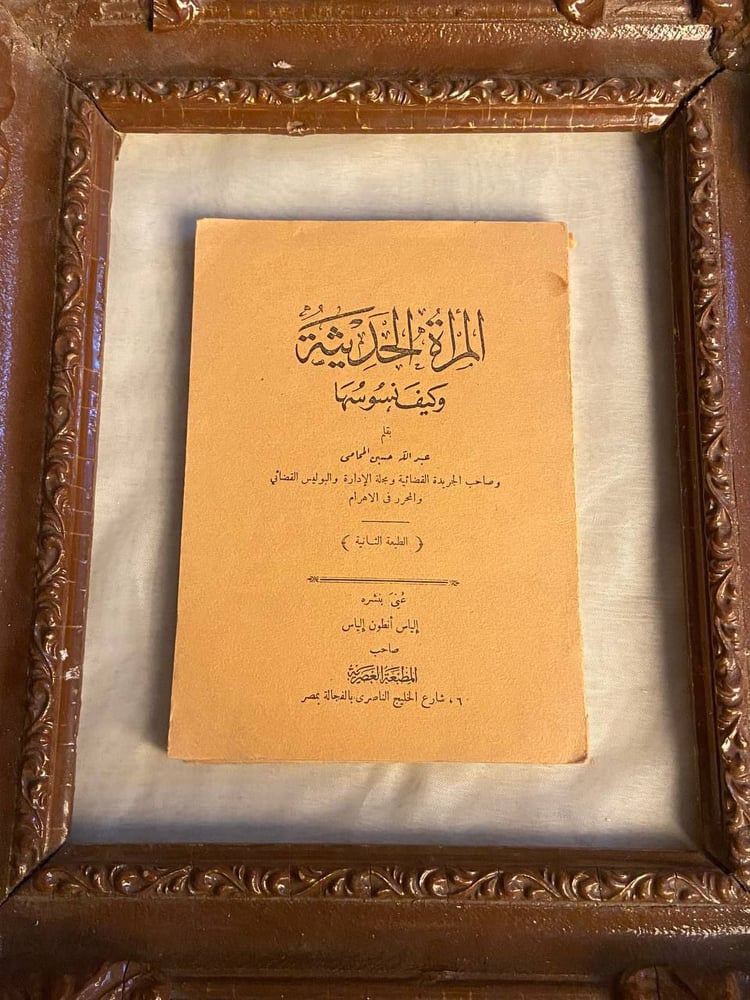 المرأة الحديثة
وكيف نسوسها
بقلم
عبد الله حسين المحامى
وصاحب الجريدة القضائية ومجلة الإدارة والبوليس القضائي
والمحرر فى الاهرام
﴿ الطبعة الثانية ﴾
عُنيَ بنشره
إلياس أنطون إلياس
صاحب
المطبعة العصرية
٦ ، شارع الخليج الناصرى بالفجالة بمصر